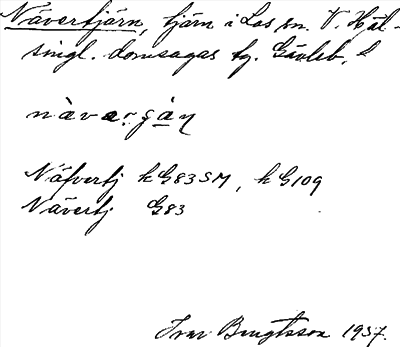 Nävertjärn, tjärn i Los sn. V. Häl-
singl. domsagas tg. Gävleb. l
nàvaṛgàn
Näfvertj kG83SM, kG109
Nävertj G83
Ivar Bengtsson 1937.